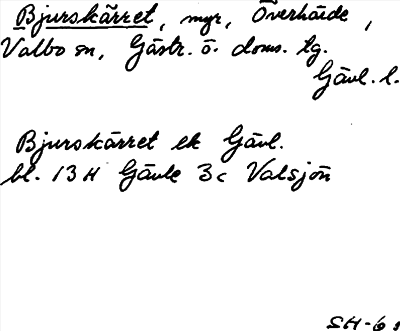 Bjurskärret, myr, Överhärde,
Valbo sn, Gästr. ö. doms. tg.
Gävl. l.
Bjurskärret ek Gävl.
bl. 13H Gävle 3c Valsjön
SH-61